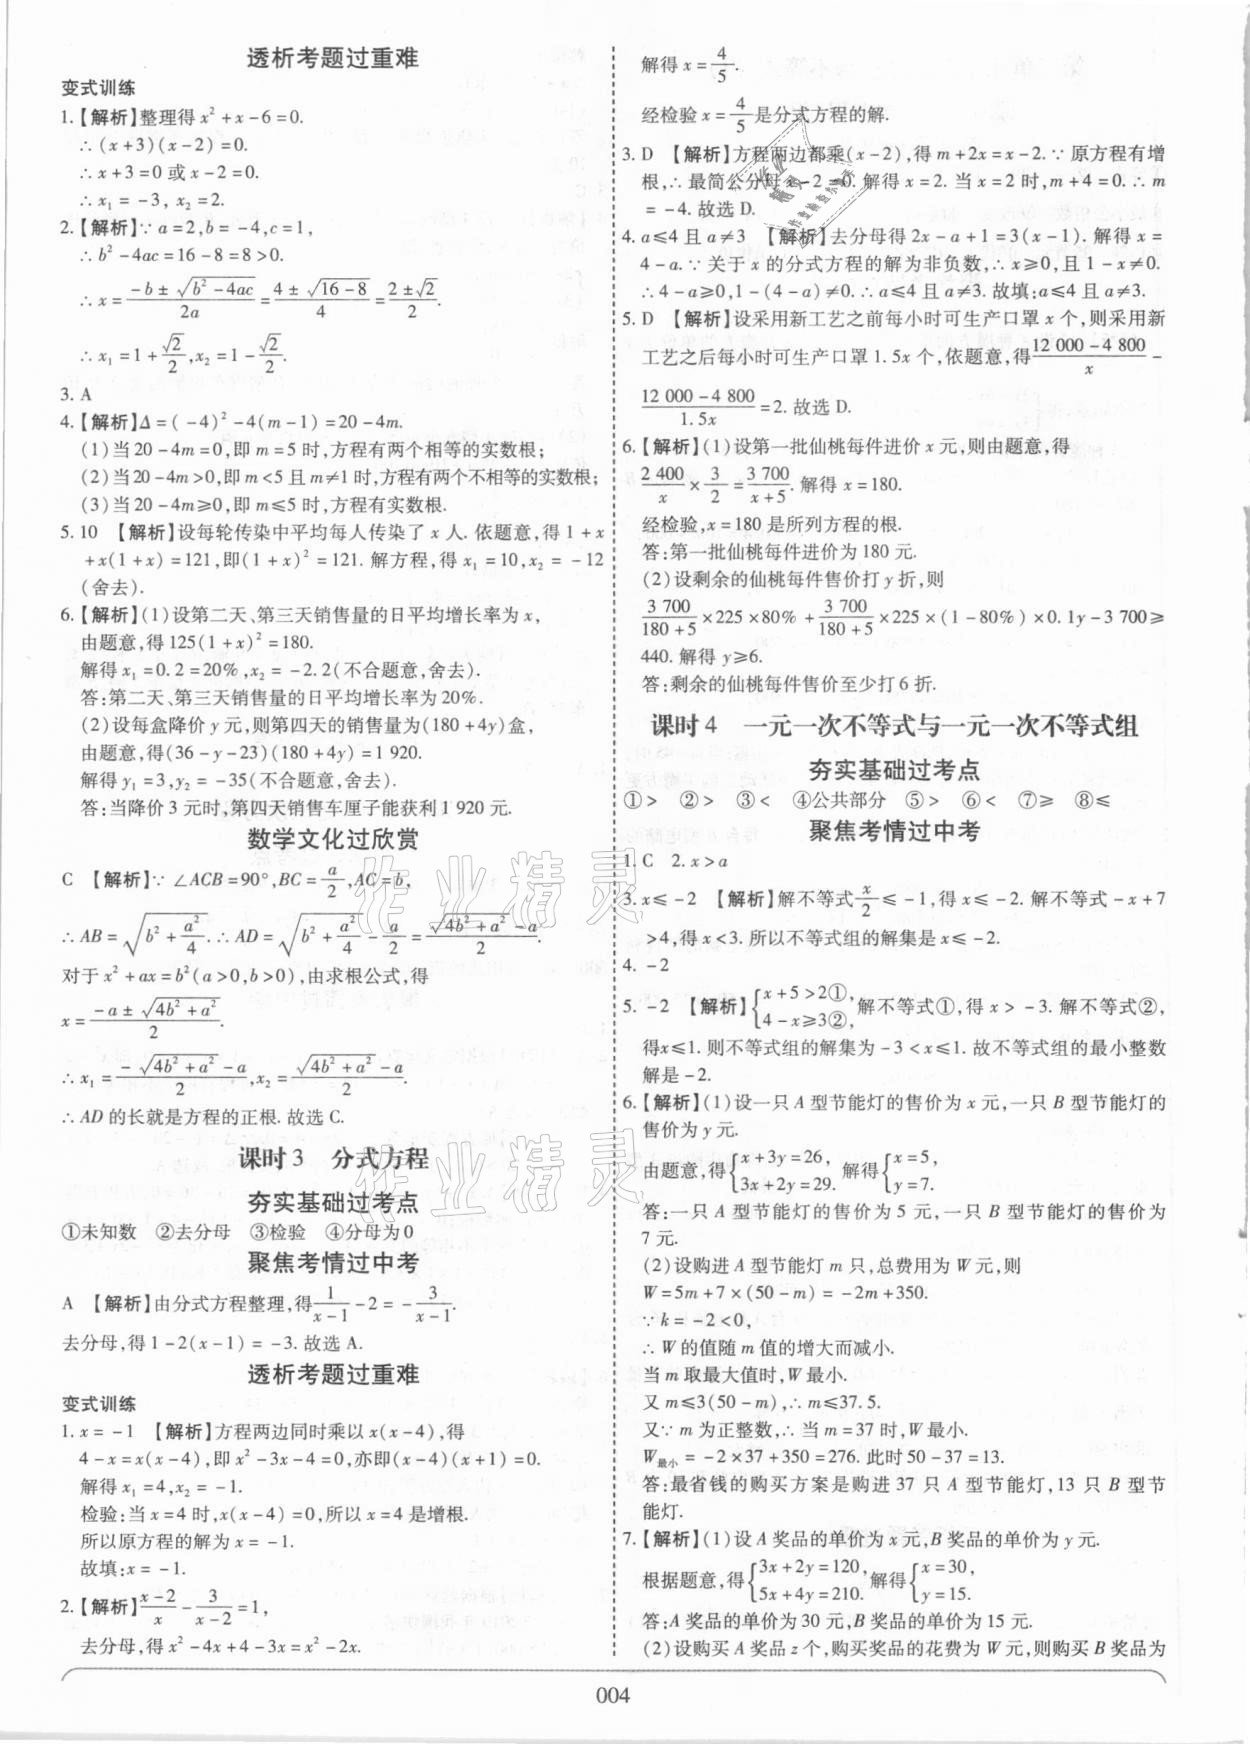 透析考题过重难
变式训练
1.【解析】整理得 x²+x-6=0.
∴(x+3)(x-2)=0.
∴x+3=0 或 x-2=0.
∴x₁=-3, x₂=2.
2.【解析】∵a=2,b=-4,c=1,
∴b²-4ac=16-8=8>0.
∴x=(-b±√(b²-4ac))/2a=(4±√(16-8))/4=(2±√2)/2.
∴x₁=1+√2/2,x₂=1-√2/2.
3. A
4.【解析】Δ=(-4)²-4(m-1)=20-4m.
(1)当 20-4m=0,即 m=5 时,方程有两个相等的实数根;
(2)当 20-4m>0,即 m<5 且 m≠1 时,方程有两个不相等的实数根;
(3)当 20-4m≥0,即 m≤5 时,方程有实数根.
5. 10 【解析】设每轮传染中平均每人传染了 x 人. 依题意,得 1+x
+x(1+x)=121,即(1+x)²=121. 解方程,得 x₁=10,x₂=-12
(舍去).
6.【解析】(1)设第二天、第三天销售量的日平均增长率为 x,
由题意,得 125(1+x)²=180.
解得 x₁=0.2=20%,x₂=-2.2(不合题意,舍去).
答:第二天、第三天销售量的日平均增长率为 20%.
(2)设每盒降价 y 元,则第四天的销售量为(180+4y)盒,
由题意,得(36-y-23)(180+4y)=1 920.
解得 y₁=3,y₂=-35(不合题意,舍去).
答:当降价 3 元时,第四天销售车厘子能获利 1 920 元.
数学文化过欣赏
C 【解析】∵∠ACB=90°,BC=a/2,AC=b,
∴AB=√(b²+a²/4).∴AD=√(b²+a²/4)-a/2=(√(4b²+a²)-a)/2.
对于 x²+ax=b²(a>0,b>0),由求根公式,得
x=(-a±√(4b²+a²))/2.
∴x₁=(-√(4b²+a²)-a)/2,x₂=(√(4b²+a²)-a)/2.
∴AD 的长就是方程的正根. 故选 C.
课时 3 分式方程
夯实基础过考点
①未知数 ②去分母 ③检验 ④分母为 0
聚焦考情过中考
A 【解析】由分式方程整理,得1/(x-1)-2=-3/(x-1).
去分母,得 1-2(x-1)=-3. 故选 A.
透析考题过重难
变式训练
1. x=-1 【解析】方程两边同时乘以 x(x-4),得
4-x=x(x-4),即 x²-3x-4=0,亦即(x-4)(x+1)=0.
解得 x₁=4,x₂=-1.
检验:当 x=4 时,x(x-4)=0,所以 x=4 是增根.
所以原方程的解为 x=-1.
故填:x=-1.
2.【解析】(x-2)/x-3/(x-2)=1,
去分母,得 x²-4x+4-3x=x²-2x.
解得 x=4/5.
经检验 x=4/5是分式方程的解.
3. D 【解析】方程两边都乘(x-2),得 m+2x=x-2.∵原方程有增
根,∴最简公分母 x-2=0. 解得 x=2. 当 x=2 时,m+4=0.∴m
=-4. 故选 D.
4. a≤4 且 a≠3 【解析】去分母得 2x-a+1=3(x-1). 解得 x=
4-a.∵关于 x 的分式方程的解为非负数,∴x≥0,且 1-x≠0.
∴4-a≥0,1-(4-a)≠0.∴a≤4 且 a≠3. 故填:a≤4 且 a≠3.
5. D 【解析】设采用新工艺之前每小时可生产口罩 x 个,则采用新
工艺之后每小时可生产口罩 1.5x 个,依题意,得(12 000-4 800)/x-
(12 000-4 800)/1.5x=2. 故选 D.
6.【解析】(1)设第一批仙桃每件进价 x 元,则由题意,得
2 400/x×3/2=3 700/(x+5). 解得 x=180.
经检验,x=180 是所列方程的根.
答:第一批仙桃每件进价为 180 元.
(2)设剩余的仙桃每件售价打 y 折,则
3 700/(180+5)×225×80%+3 700/(180+5)×225×(1-80%)×0.1y-3 700≥
440. 解得 y≥6.
答:剩余的仙桃每件售价至少打 6 折.
课时 4 一元一次不等式与一元一次不等式组
夯实基础过考点
①> ②> ③< ④公共部分 ⑤> ⑥< ⑦≥ ⑧≤
聚焦考情过中考
1. C 2. x>a
3. x≤-2 【解析】解不等式x/2≤-1,得 x≤-2. 解不等式-x+7
>4,得 x<3. 所以不等式组的解集是 x≤-2.
4. -2
5. -2 【解析】{x+5>2①, 4-x≥3②, 解不等式①,得 x>-3. 解不等式②,
得x≤1. 则不等式组的解集为-3<x≤1. 故不等式组的最小整数
解是-2.
6.【解析】(1)设一只 A 型节能灯的售价为 x 元,一只 B 型节能灯的
售价为 y 元.
由题意,得{x+3y=26, 3x+2y=29. 解得{x=5, y=7.
答:一只 A 型节能灯的售价为 5 元,一只 B 型节能灯的售价为
7 元.
(2)设购进 A 型节能灯 m 只,总费用为 W 元,则
W=5m+7×(50-m)=-2m+350.
∵k=-2<0,
∴W 的值随 m 值的增大而减小.
当 m 取最大值时,W 最小.
又 m≤3(50-m),∴m≤37.5.
又∵m 为正整数,∴当 m=37 时,W 最小.
W最小=-2×37+350=276. 此时 50-37=13.
答:最省钱的购买方案是购进 37 只 A 型节能灯,13 只 B 型节
能灯.
7.【解析】(1)设 A 奖品的单价为 x 元,B 奖品的单价为 y 元.
根据题意,得{3x+2y=120, 5x+4y=210. 解得{x=30, y=15.
答:A 奖品的单价为 30 元,B 奖品的单价为 15 元.
(2)设购买 A 奖品 z 个,购买奖品的花费为 W 元,则购买 B 奖品为
004
作业精灵
作业精灵